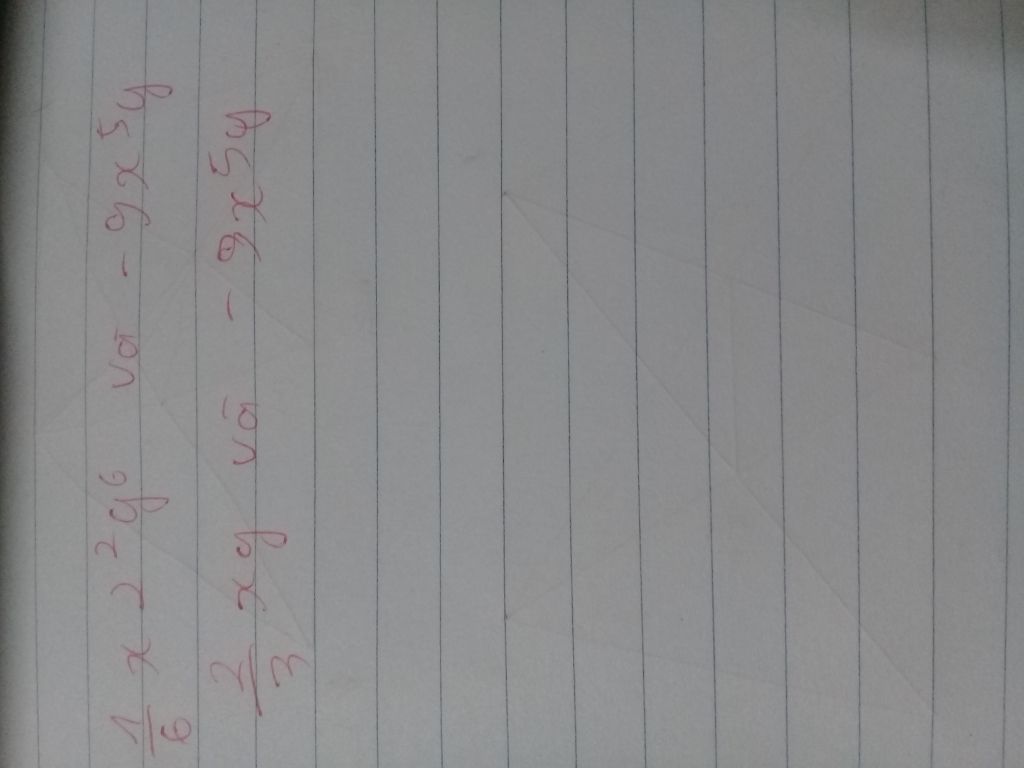 1/6 x 2²y⁶ và - 9x⁵y
2/3 xy và - 9x⁵y